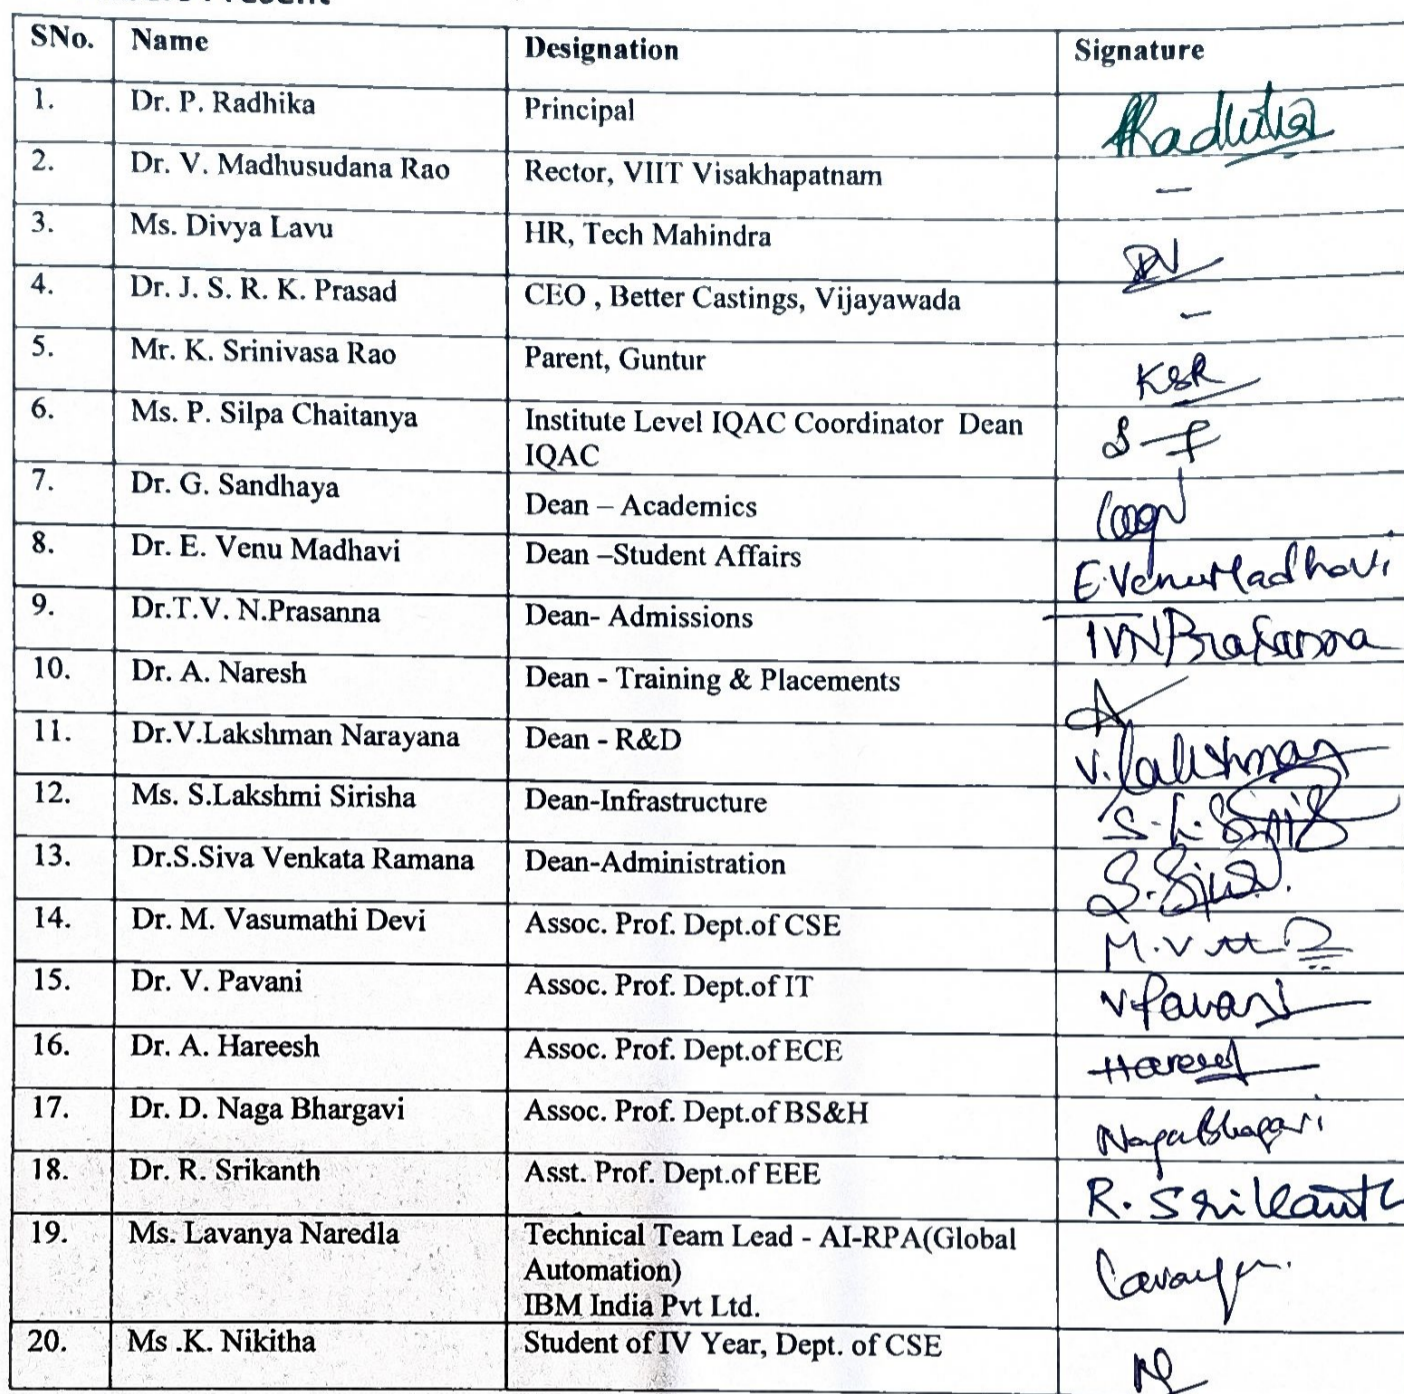 Present
SNo. Name Designation Signature
1. Dr. P. Radhika Principal Radhika
2. Dr. V. Madhusudana Rao Rector, VIIT Visakhapatnam –
3. Ms. Divya Lavu HR, Tech Mahindra
4. Dr. J. S. R. K. Prasad CEO , Better Castings, Vijayawada –
5. Mr. K. Srinivasa Rao Parent, Guntur KSR
6. Ms. P. Silpa Chaitanya Institute Level IQAC Coordinator Dean
IQAC
7. Dr. G. Sandhaya Dean – Academics
8. Dr. E. Venu Madhavi Dean –Student Affairs E.VenuMadhavi
9. Dr.T.V. N.Prasanna Dean- Admissions TVNPrasanna
10. Dr. A. Naresh Dean - Training & Placements
11. Dr.V.Lakshman Narayana Dean - R&D V.Lakshman
12. Ms. S.Lakshmi Sirisha Dean-Infrastructure
13. Dr.S.Siva Venkata Ramana Dean-Administration S.Siva
14. Dr. M. Vasumathi Devi Assoc. Prof. Dept.of CSE
15. Dr. V. Pavani Assoc. Prof. Dept.of IT V.Pavani
16. Dr. A. Hareesh Assoc. Prof. Dept.of ECE
17. Dr. D. Naga Bhargavi Assoc. Prof. Dept.of BS&H NagaBhargavi
18. Dr. R. Srikanth Asst. Prof. Dept.of EEE R. Srikanth
19. Ms. Lavanya Naredla Technical Team Lead - AI-RPA(Global
Automation)
IBM India Pvt Ltd. Lavanya
20. Ms .K. Nikitha Student of IV Year, Dept. of CSE